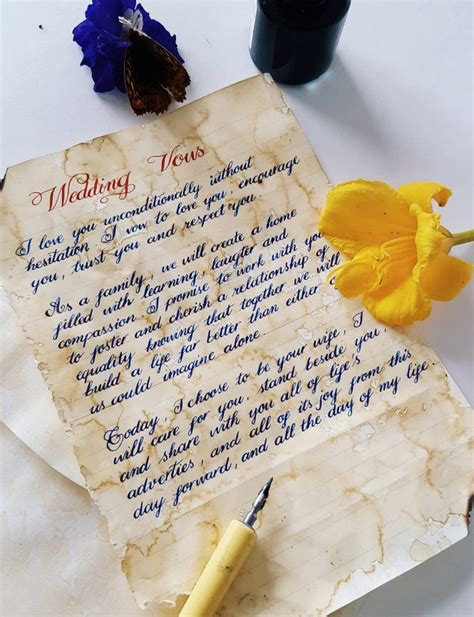 Wedding Vous
I love you unconditionally without
hesitation. I vow to love you, encourage
you, trust you and respect you.
As a family, we will create a home
filled with learning, laugter and
compassion. I promise to work with you
to foster and cherish a relationship of
equality knowing that together we will
build a life far better than either
as could imagine alone.
Today, I choose to be your wife, I
will care for you, stand beside you,
and share with you all of life's
adverties, and all of its joy from this
day forward, and all the day of my life